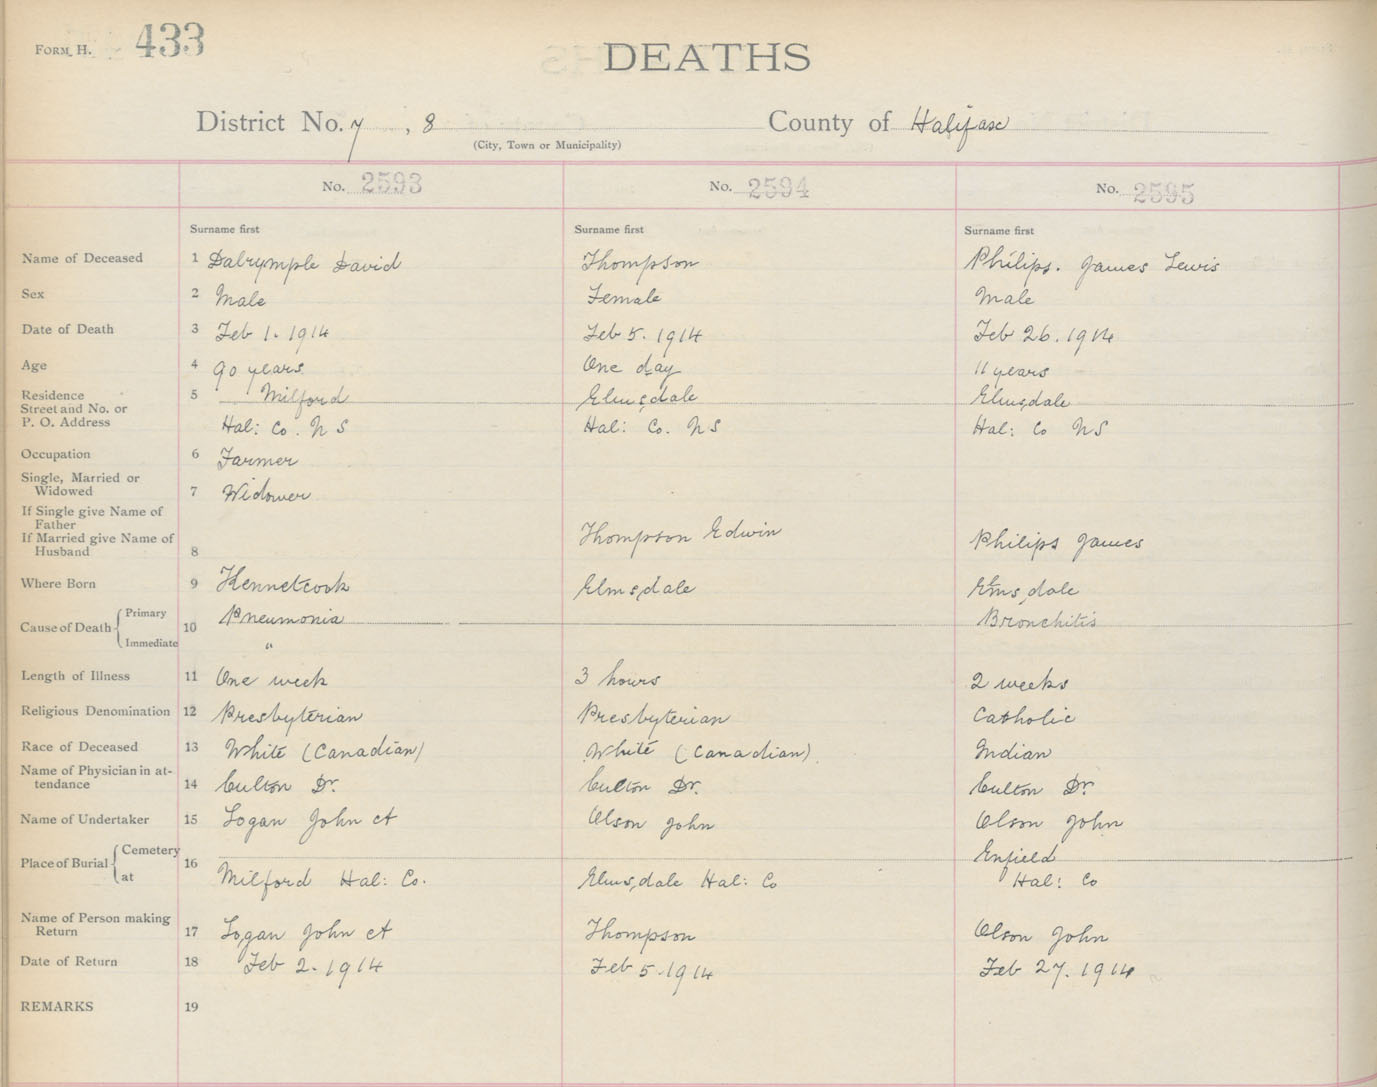 Form H. 433
DEATHS
District No. 7, 8 County of Halifax
(City, Town or Municipality)
No. 2593 No. 2594 No. 2595
Surname first Surname first Surname first
Name of Deceased 1 Dalrymple David Thompson Philips. James Lewis
Sex 2 Male Female Male
Date of Death 3 Feb 1. 1914 Feb 5. 1914 Feb 26. 1914
Age 4 90 years One day 11 years
Residence 5 Milford Elmsdale Elmsdale
Street and No. or
P. O. Address Hal: Co. N S Hal: Co. N S Hal: Co N S
Occupation 6 Farmer
Single, Married or
Widowed 7 Widower
If Single give Name of
Father
If Married give Name of Thompson Edwin Philips James
Husband 8
Where Born 9 Kennetcook Elmsdale Elmsdale
Cause of Death Primary 10 Pneumonia Bronchitis
Immediate "
Length of Illness 11 One week 3 hours 2 weeks
Religious Denomination 12 Presbyterian Presbyterian Catholic
Race of Deceased 13 White (Canadian) White (Canadian) Indian
Name of Physician in at-
tendance 14 Culton Dr. Culton Dr. Culton Dr
Name of Undertaker 15 Logan John A Olson John Olson John
Place of Burial Cemetery 16 Enfield
at Milford Hal: Co. Elmsdale Hal: Co Hal: Co
Name of Person making
Return 17 Logan John A Thompson Olson John
Date of Return 18 Feb 2. 1914 Feb 5. 1914 Feb 27. 1914
REMARKS 19